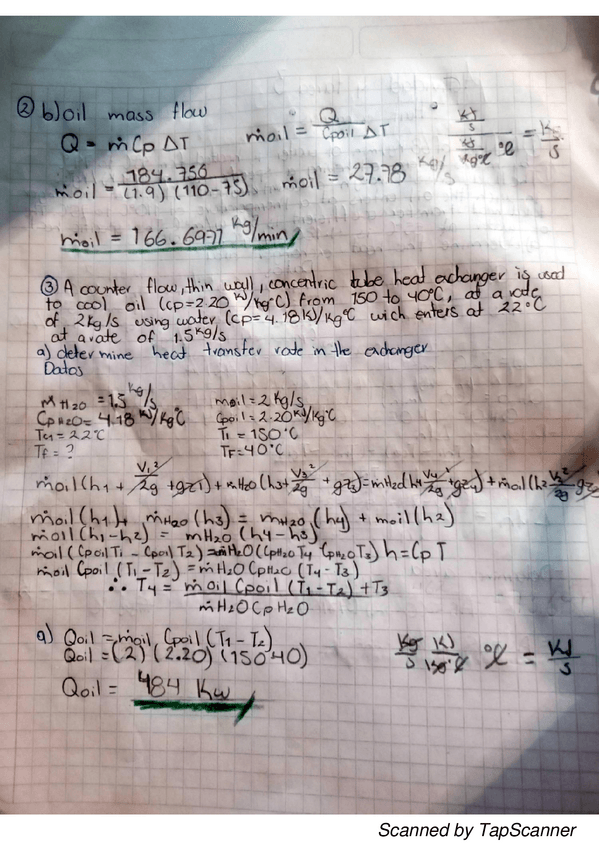 ② b) oil mass flow
Q = ṁ Cp ΔT
ṁoil = Q / Cpoil ΔT
KJ/s / KJ/Kg°C °C = Kg/s
ṁoil = 184.756 / (1.9) (110-75)
ṁoil = 27.78 Kg/s
ṁoil = 166.6971 Kg/min
③ A counter flow, thin wall, concentric tube heat exchanger is used
to cool oil (cp=2.20 KJ/Kg°C) from 150 to 40°C, at a rate
of 2Kg/s using water (cp=4.18KJ/Kg°C wich enters at 22°C
at a rate of 1.5 Kg/s
a) determine heat transfer rate in the exchanger
Datos
ṁ H2O = 1.5 Kg/s
ṁoil = 2 Kg/s
CpH2O = 4.18 KJ/Kg°C
Cpoil = 2.20 KJ/Kg°C
Te1 = 22°C
Ti = 150°C
Tf = ?
TF = 40°C
ṁoil (h1 + V1²/2g + gz1) + ṁH2O (h3 + V3²/2g + gz3) = ṁH2O (h4 V4²/2g + gz4) + ṁoil (h2 V2²/2g gz
ṁoil (h1) + ṁH2O (h3) = ṁH2O (h4) + ṁoil (h2)
ṁoil (h1-h2) = ṁH2O (h4-h3)
ṁoil (CpoilT1 - Cpoil T2) = ṁH2O (CpH2O T4 CpH2O T3) h = Cp T
ṁoil Cpoil (T1-T2) = ṁH2O CpH2O (T4-T3)
∴ T4 = ṁoil Cpoil (T1-T2) / ṁH2O CpH2O + T3
a) Qoil = ṁoil Cpoil (T1-T2)
Qoil = (2) (2.20) (150 40)
Kg/s KJ/Kg°C °C = KJ/s
Qoil = 484 Kw
Scanned by TapScanner